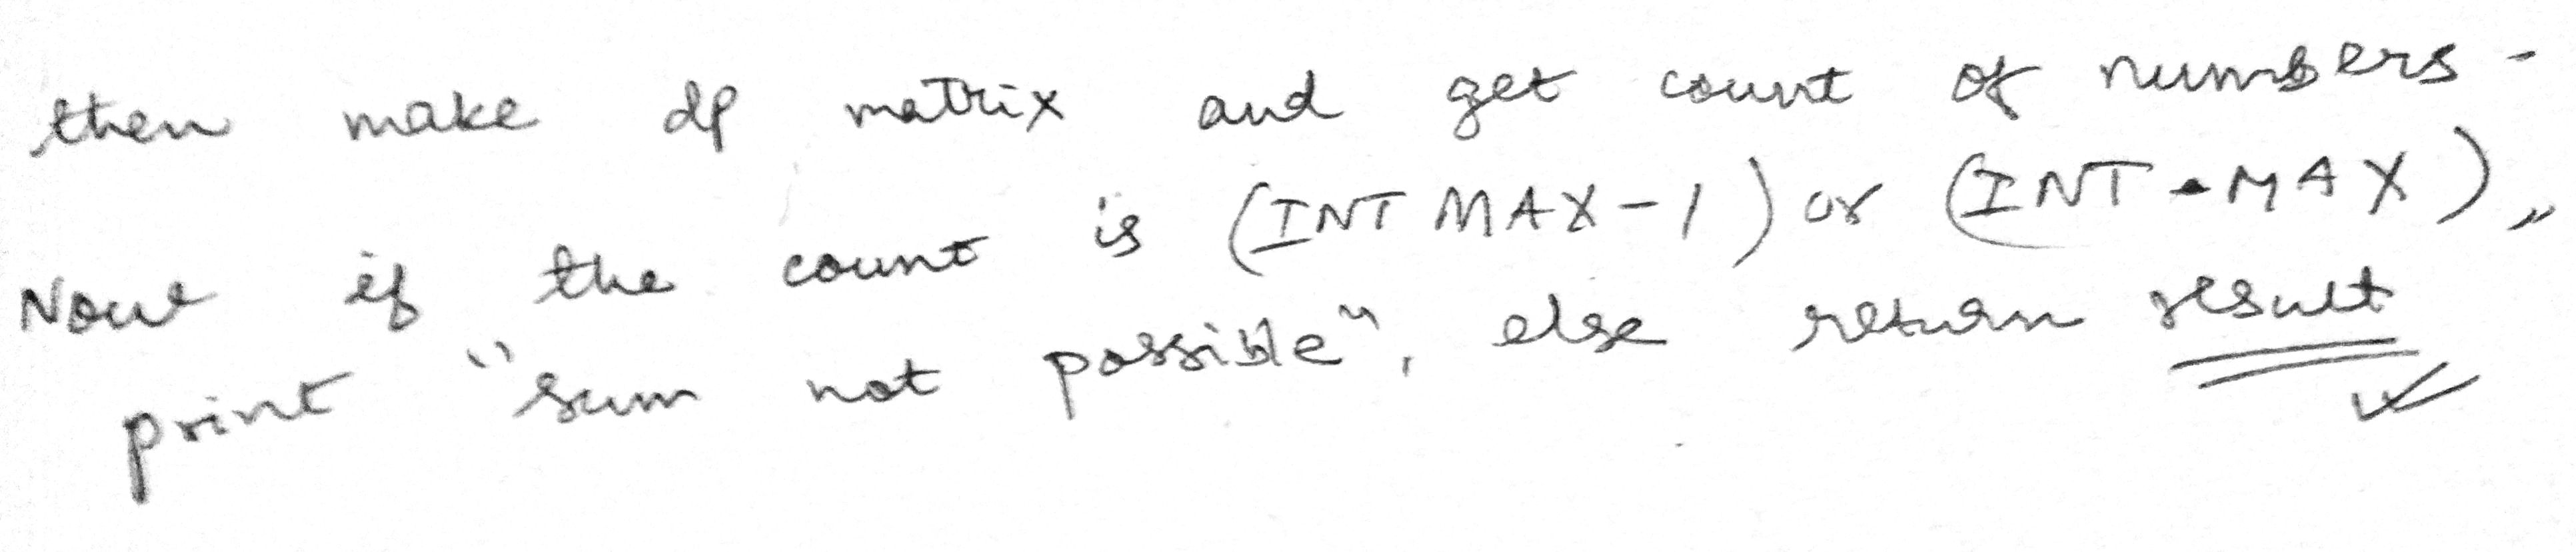 then make dp matrix and get count of numbers -
Now if the count is (INT MAX-1) or (INT-MAX),,
print "sum not possible", else return result